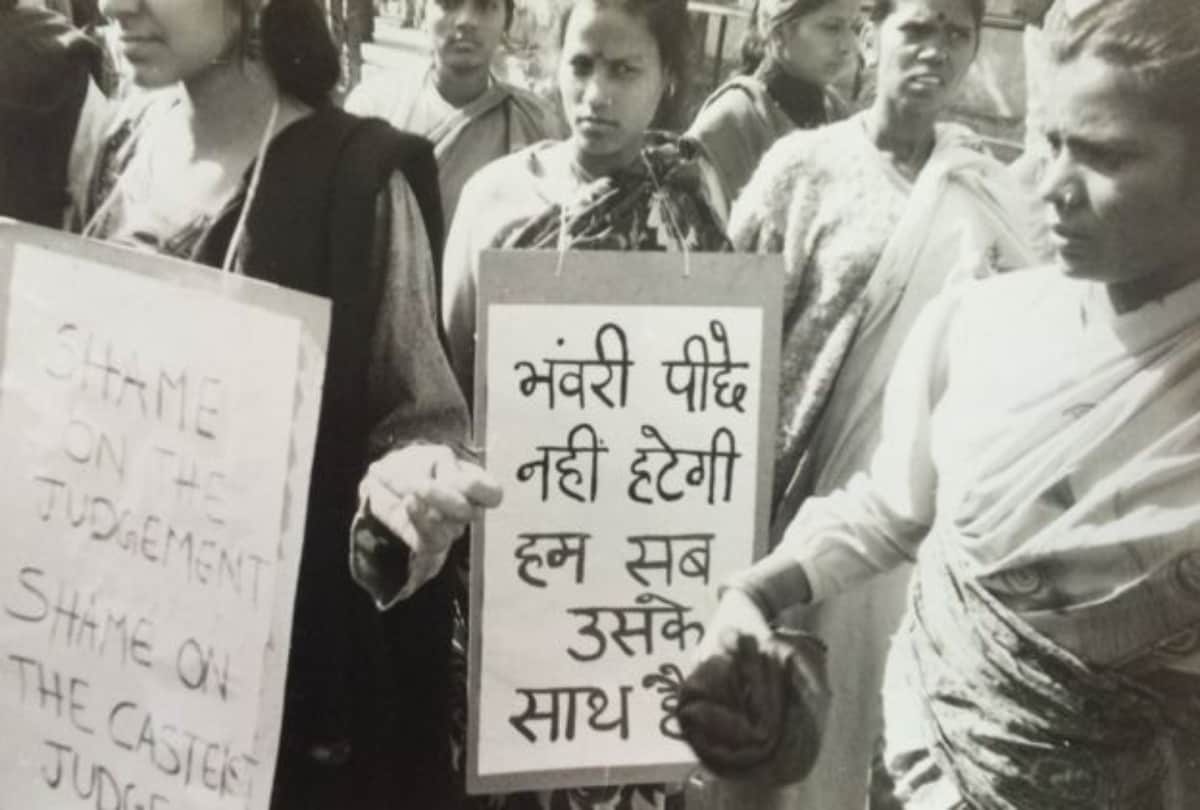 SHAME
ON THE
JUDGEMENT
SHAME ON
THE CASTEIST
भंवरी पीछे
नहीं हटेगी
हम सब
उसके
साथ है